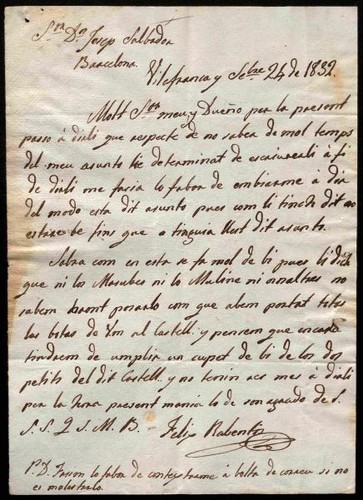 Sr. Dn. Josep Salbador
Barcelona.
Vilafranca y Setbre 24 de 1832.
Molt Sor. meu, y Dueño per la present
passo á dirli que respecte de no saber de mol temps
del meu asunto he determinat de escriureli á fi
de dirli me facia lo fabor de embiarme á dir
del modo esta dit asunto pues com li tinch dit no
estare be fins que o tinguia llest dit asunto.
Sobra com en esta se fa mol de bi pues li dich
que ni los Masubes ni lo Maline ni nosaltres no
sabem haont posarlo com que abem portat totas
las botas de al Castell y pensem que encara
tindrem de umplir un cupet de bi de los dos
petits del dit Castell, y no tenin res mes á dirli
per la present mania lo de son agrado de S.
S. S. Q. S. M. B. Felip Rabentós
Pd. Fasson lo fabor de contestarme á balta de correu si no
es molestarlo.